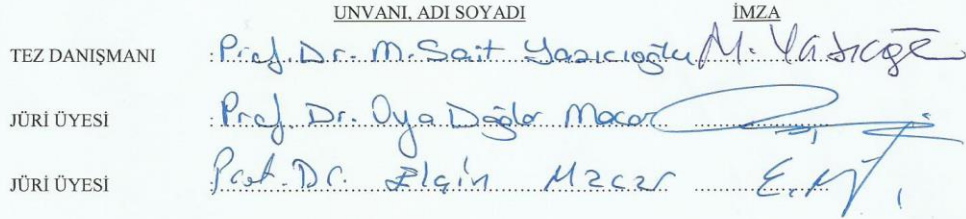 UNVANI, ADI SOYADI İMZA
TEZ DANIŞMANI : Prof. Dr. M. Sait Yazıcıoğlu M. Yazıcıoğlu
JÜRİ ÜYESİ : Prof. Dr. Oya Dağlar Macar
JÜRİ ÜYESİ : Prof. Dr. Elçin Macar E. M